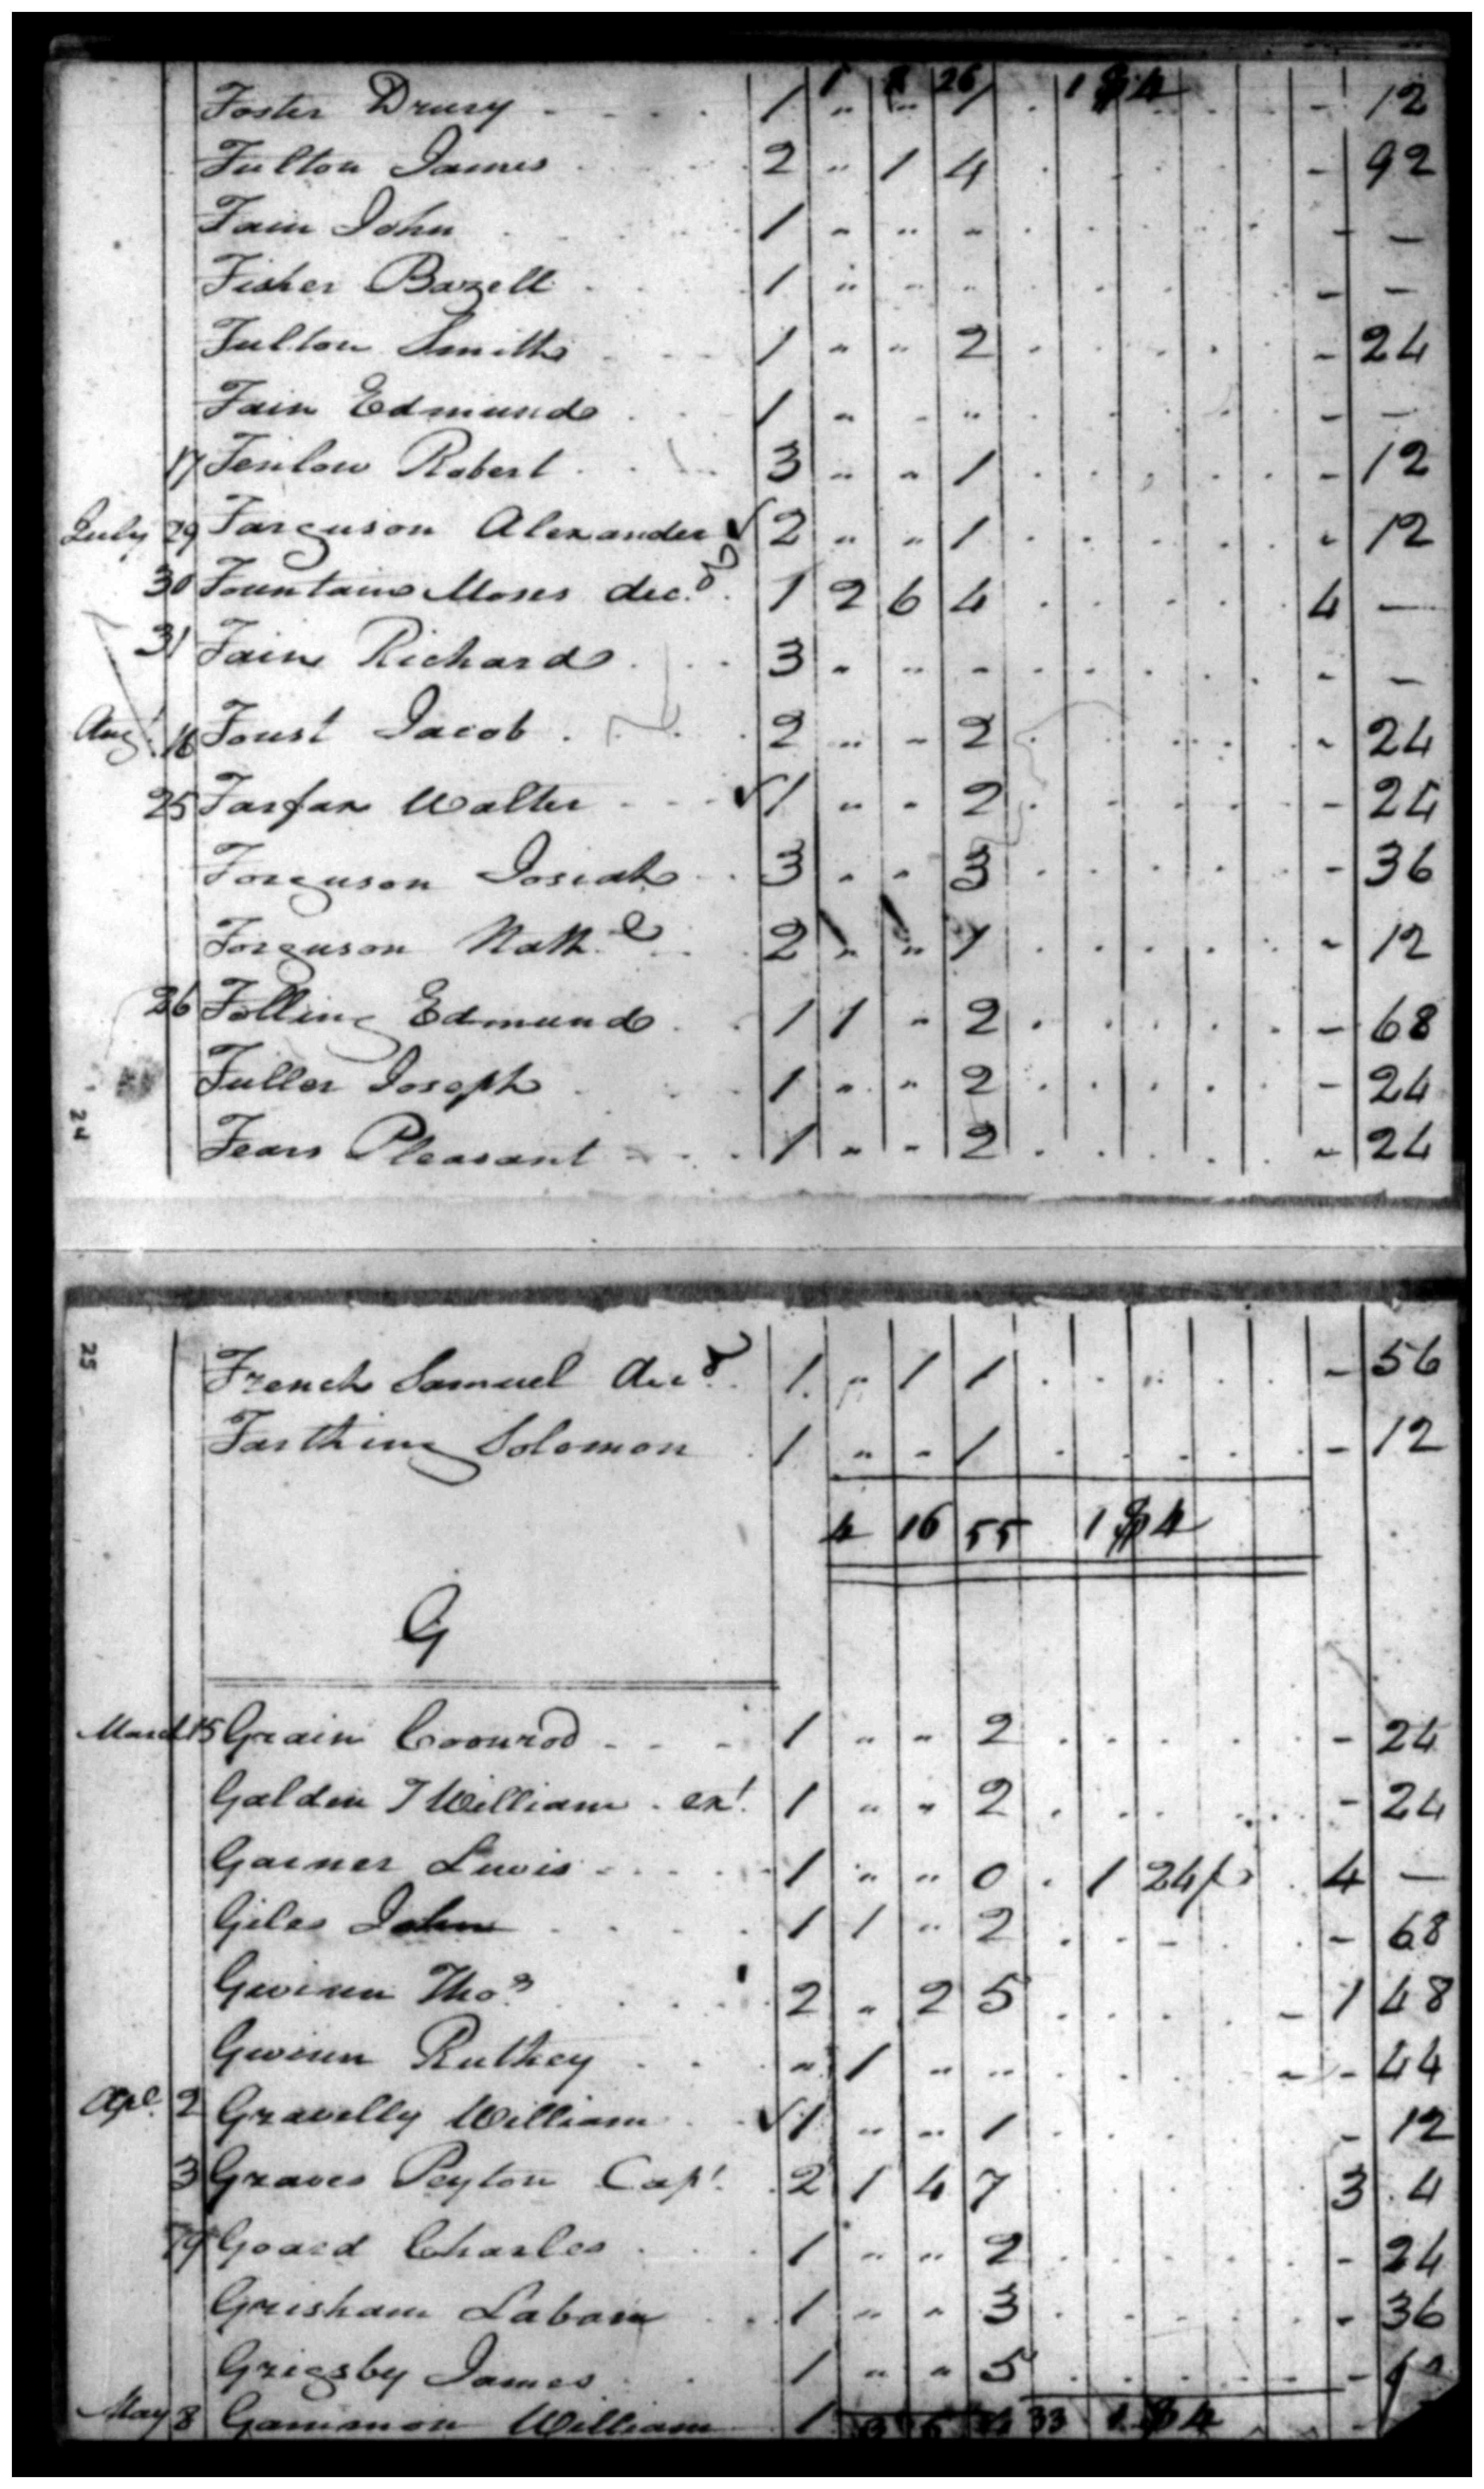 1 26 1 $4
Foster Drury 1 " " 1 - 12
Fulton James 2 " 1 4 - 92
Fain John 1 " " " - —
Fisher Bazell 1 " " " - —
Fulton Smith 1 " " 2 - 24
Fain Edmund 1 " " " - —
17 Fenlow Robert 3 " " 1 - 12
July 29 Farguson Alexander ✓ 2 " " 1 - 12
30 Fountain Moses dec.d 1 2 6 4 4 —
31 Fain Richard 3 " " " - —
Augt. 16 Foust Jacob 2 " " 2 - 24
25 Farfax Walter ✓ 1 " " 2 - 24
Forguson Josiah 3 " " 3 - 36
Forguson Nath.l 2 " " 1 - 12
26 Folling Edmund 1 1 " 2 - 68
Fuller Joseph 1 " " 2 - 24
24
Fears Pleasant 1 " " 2 - 24
25
French Samuel decd. 1 " 1 1 - 56
Farthing Solomon 1 " " 1 - 12
4 16 55 1 $4
G
March 15 Grain Coonrod 1 " " 2 - 24
Galden T William ext. 1 " " 2 - 24
Garner Lewis 1 " " 0 1 24 4 —
Giles John 1 1 " 2 - 68
Gwinn Thos. 2 " 2 5 - 1 48
Gwinn Ruthey " 1 " " - - 44
Apl. 2 Gravelly William ✓ 1 " " 1 - 12
3 Graves Peyton Capt. 2 1 4 7 3 4
19 Goard Charles 1 " " 2 - 24
Grisham Labam 1 " " 3 - 36
Grigsby James 1 " " 5 -
May 8 Gammon William 1 33 1 $4